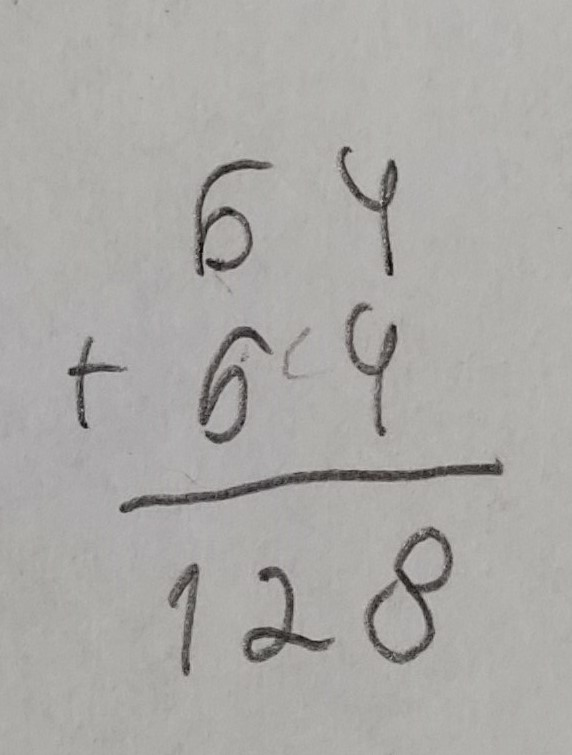 64
+ 64
128